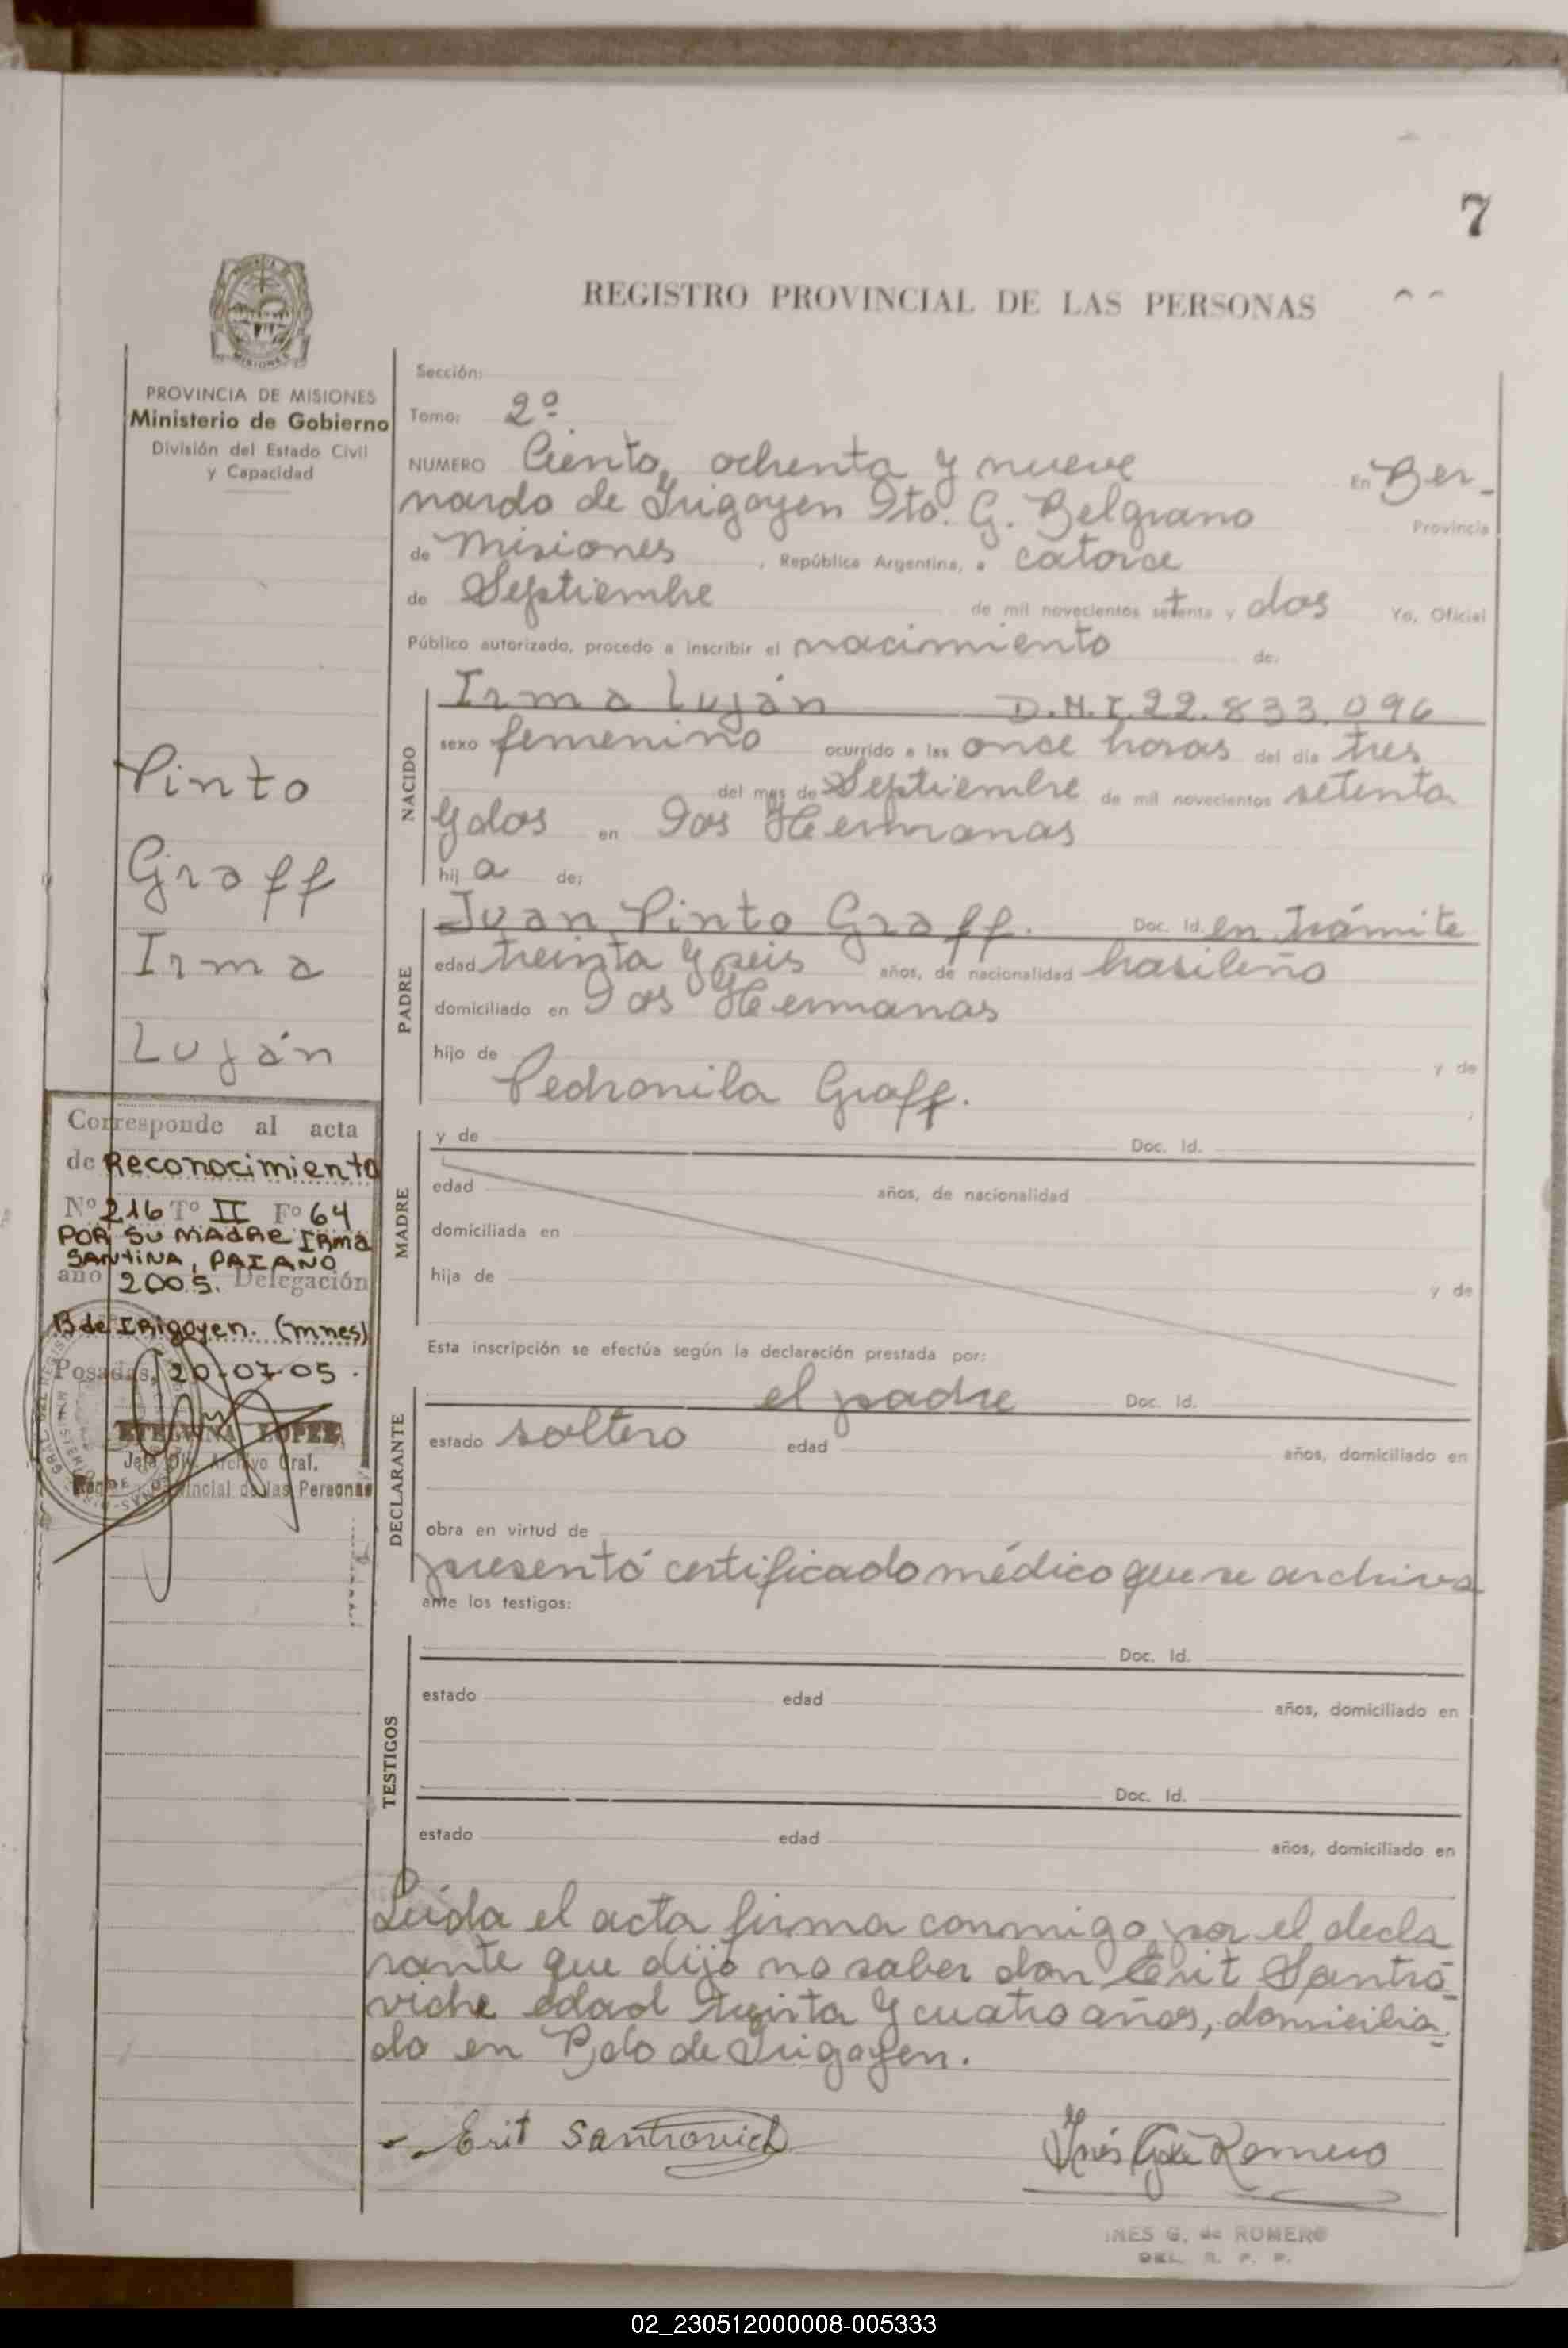 7
REGISTRO PROVINCIAL DE LAS PERSONAS
PROVINCIA DE MISIONES
Ministerio de Gobierno
División del Estado Civil
y Capacidad
Pinto
Graff
Irma
Luján
Corresponde al acta
de Reconocimiento
Nº 216 Tº II Fº 64
POR SU MADRE IRMA
SANTINA, PAIANO
año 2005. Delegación
B de IRIGOYEN. (mnes)
Posadas, 20-07-05.
ETELVINA LOPEZ
Jefa Div. Archivo Gral.
Provincial de las Personas
Sección:
Tomo: 2º
NUMERO Ciento, ochenta y nueve En Ber-
nardo de Irigoyen Dto. G. Belgrano Provincia
de Misiones, República Argentina, a catorce
de Septiembre de mil novecientos setenta y dos Yo, Oficial
Público autorizado, procedo a inscribir el nacimiento de:
NACIDO
Irma Luján D.N.I. 22.833.096
sexo femenino ocurrido a las once horas del día tres
del mes de Septiembre de mil novecientos setenta
y dos en Dos Hermanas
hij a de:
PADRE
Juan Pinto Graff. Doc. Id. en trámite
edad treinta y seis años, de nacionalidad brasileño
domiciliado en Dos Hermanas
hijo de y de
Pedronila Graff.
MADRE
y de Doc. Id.
edad años, de nacionalidad
domiciliada en
hija de y de
Esta inscripción se efectúa según la declaración prestada por:
DECLARANTE
el padre Doc. Id.
estado soltero edad años, domiciliado en
obra en virtud de
presentó certificado médico que se archiva
ante los testigos:
TESTIGOS
Doc. Id.
estado edad años, domiciliado en
Doc. Id.
estado edad años, domiciliado en
Leída el acta firma conmigo por el decla
rante que dijo no saber don Erit Santro-
viche edad treinta y cuatro años, domicilia-
do en Bdo de Irigoyen.
Erit Santrovich
Inés G. de Romero
INES G. de ROMERO
DEL. R. P. P.
02_230512000008-005333